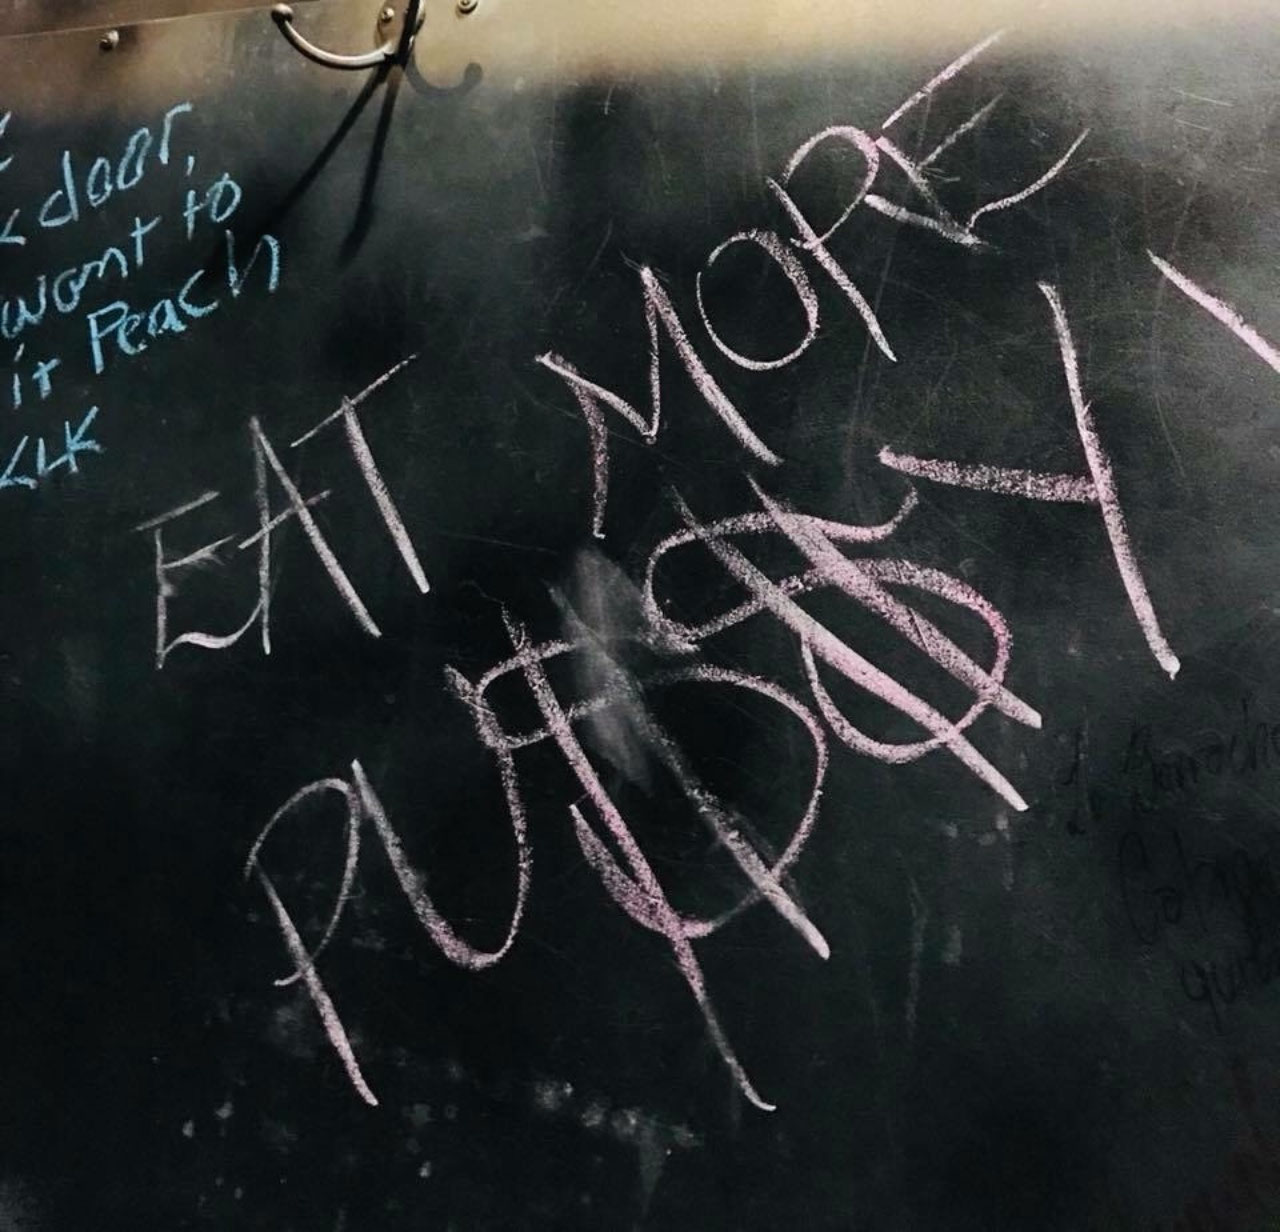 door,
want to
it Peach
EAT MORE
PU$$Y